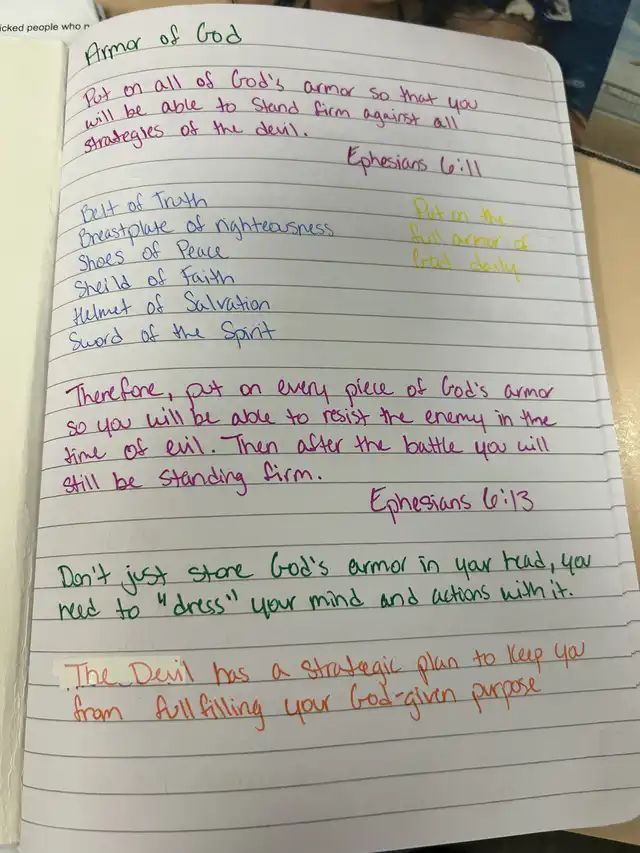 icked people who r
Armor of God
Put on all of God's armor so that you
will be able to stand firm against all
strategies of the devil.
Ephesians 6:11
Belt of Truth
Breastplate of righteousness
Shoes of Peace
Sheild of Faith
Helmet of Salvation
Sword of the Spirit
Put on the
full armor of
God daily
Therefore, put on every piece of God's armor
so you will be able to resist the enemy in the
time of evil. Then after the battle you will
still be standing firm.
Ephesians 6:13
Don't just store God's armor in your head, you
need to "dress" your mind and actions with it.
The Devil has a strategic plan to keep you
from fullfilling your God-given purpose